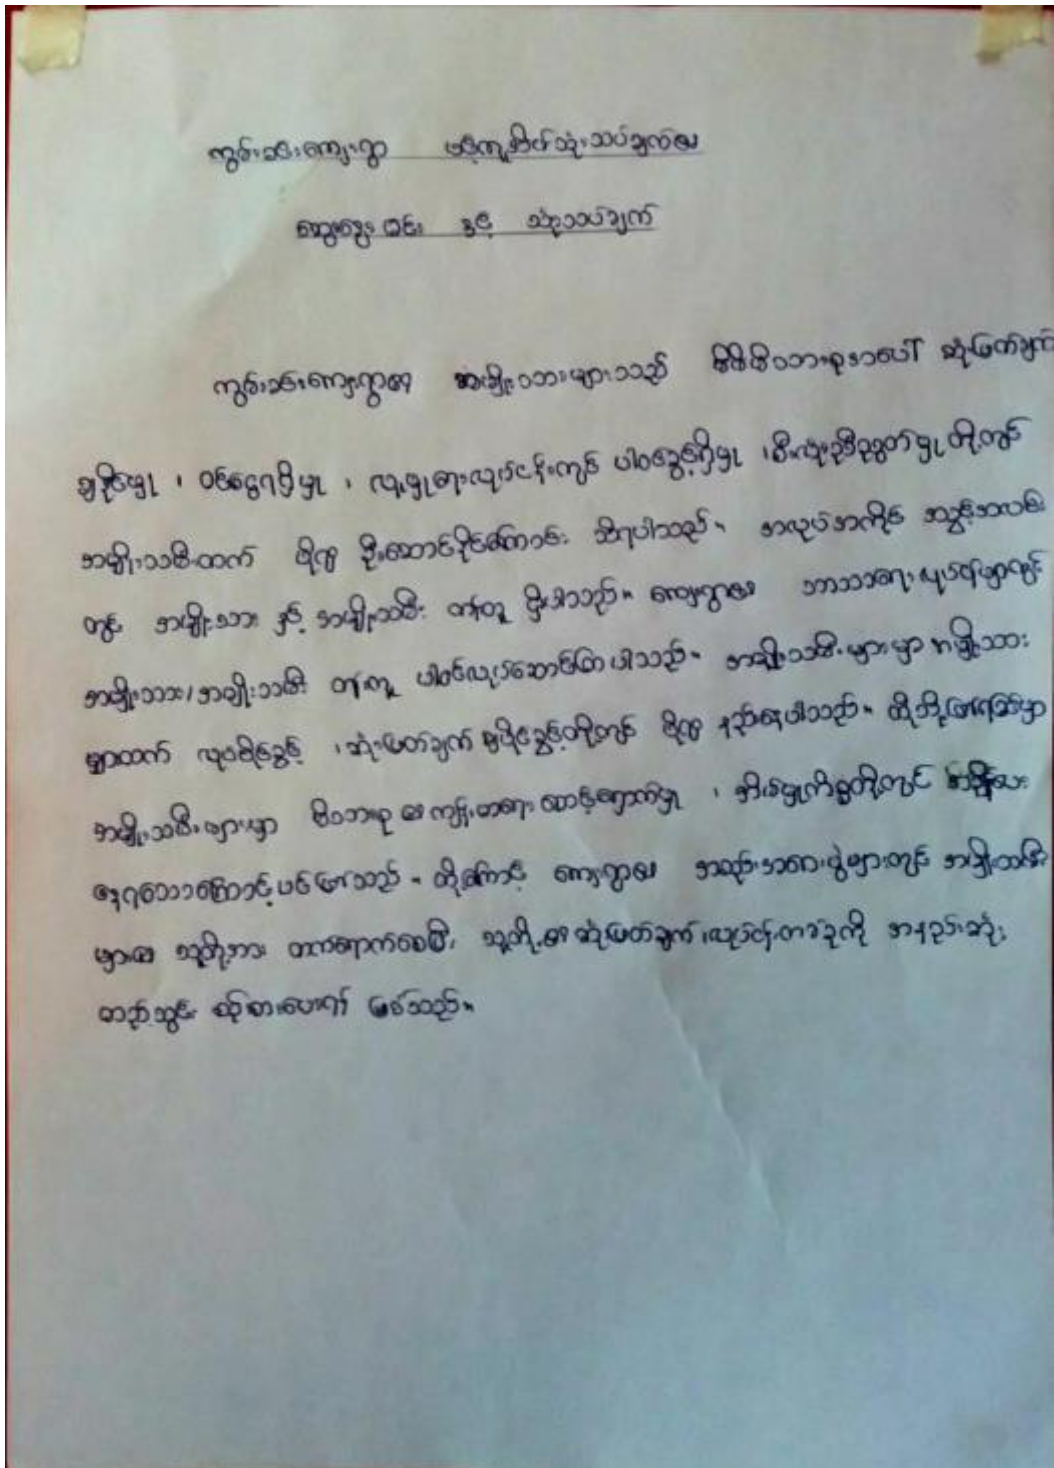 ကွမ်းခင်းကျေးရွာ သုံးသပ်ချက်မှ
ဆွေးနွေးခြင်း နှင့် သုံးသပ်ချက်
ကွမ်းခင်းကျေးရွာမှ အမျိုးသားများသည် မိမိမိသားစုအပေါ် ဆုံးဖြတ်ချက်
ချနိုင်မှု ၊ ဝင်ငွေရှိမှု ၊ လူမှုရေးလုပ်ငန်းတွင် ပါဝင်ခွင့်ရှိမှု ၊ စီးပွားဥစ္စာ တို့တွင်
အမျိုးသမီးထက် ပို၍ ဦးဆောင်နိုင်ကြောင်း သိရပါသည်။ အလုပ်အကိုင် အခွင့်အလမ်း
တွင် အမျိုးသား နှင့် အမျိုးသမီး တန်းတူ ရှိပါသည်။ ကျေးရွာမှ ဘာသာရေး လုပ်ငန်းများတွင်
အမျိုးသား/အမျိုးသမီး တန်းတူ ပါဝင်လုပ်ဆောင်ကြပါသည်။ အမျိုးသမီးများမှာ အမျိုးသား
များထက် လုပ်ပိုင်ခွင့် ၊ ဆုံးဖြတ်ချက် ချပိုင်ခွင့်တို့တွင် ပို၍ နည်းနေပါသည်။ ထိုသို့ဖြစ်ရခြင်းမှာ
အမျိုးသမီးများမှာ မိသားစု ကျန်းမာရေး စောင့်ရှောက်မှု ၊ အိမ်မှုကိစ္စတို့တွင် အချိန်ပေး
နေရသောကြောင့်ပင်ဖြစ်သည်။ ထို့ကြောင့် ကျေးရွာမှ အစည်းအဝေးပွဲများတွင် အမျိုးသမီး
များမှ သူတို့အား တက်ရောက်စေပြီး သူတို့မှ ဆုံးဖြတ်ချက် လုပ်ငန်းတာဝန်ကို အနည်းဆုံး
ထည့်သွင်း စဉ်းစားပေးရန် ဖြစ်သည်။